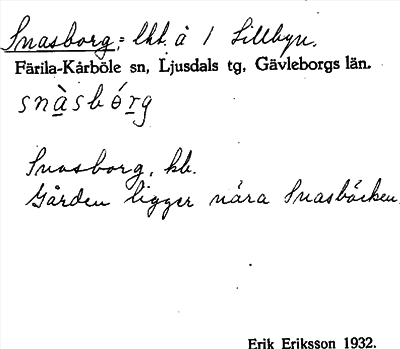 Snasborg, = lht. å 1 Lillbyn.
Färila-Kårböle sn, Ljusdals tg, Gävleborgs län.
snàsbórg
Snasborg, hb.
Gården ligger nära Snasbäcken.
Erik Eriksson 1932.